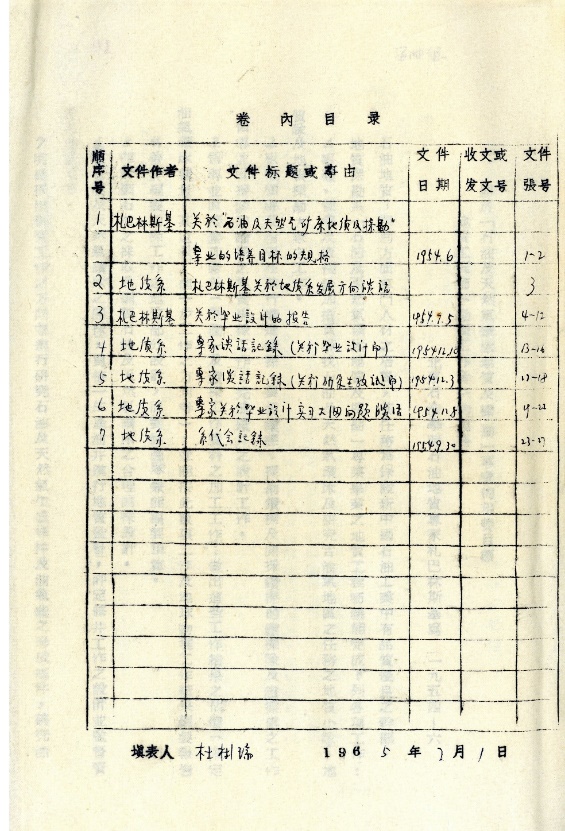 卷內目录
順序号 文件作者 文件标题或事由 文件日期 收文或发文号 文件張号
1 札巴林斯基 关於"石油及天然气矿床地质及探勘"
畢业的培养目标的规格 1954.6 1-2
2 地质系 札巴林斯基关於地质系发展方向谈話 3
3 札巴林斯基 关於毕业設计的报告 4-12
4 地质系 專家谈话記録(关於毕业設计 1954.12.10 13-16
5 地质系 專家谈話記録(关於 1954.12.3 17-18
6 地质系 專家关於毕业設计 问题 19-22
7 地质系 系代会記録 1954.9.30 23-27
填表人 杜树 1965年2月1日